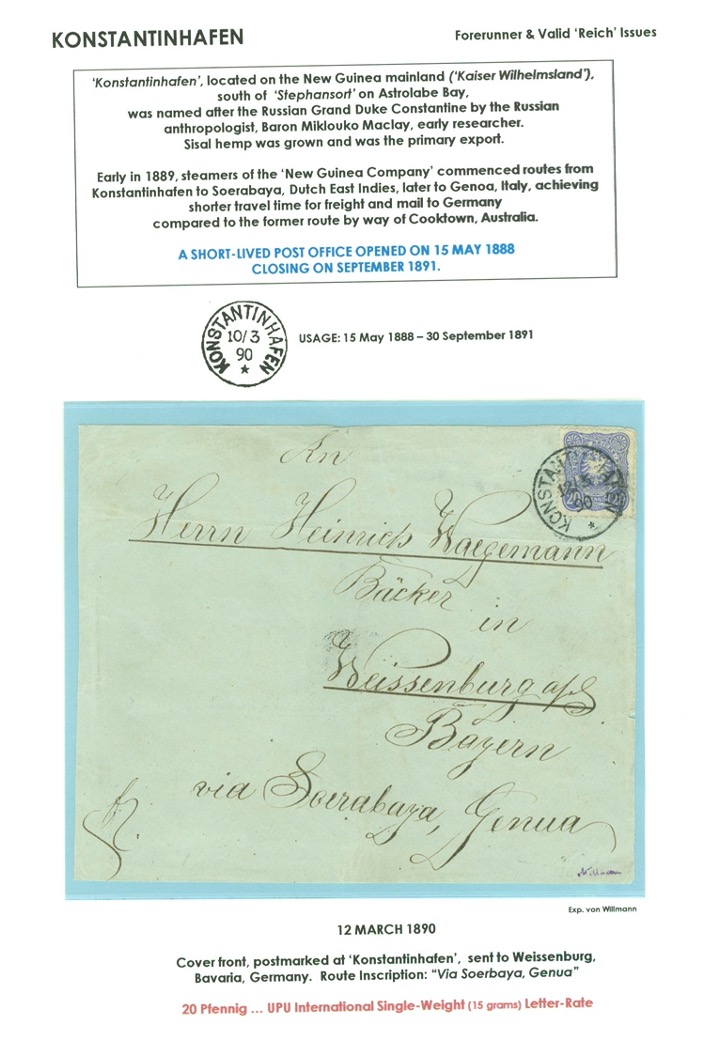 KONSTANTINHAFEN
Forerunner & Valid ‘Reich’ Issues
‘Konstantinhafen’, located on the New Guinea mainland (‘Kaiser Wilhelmsland’),
south of ‘Stephansort’ on Astrolabe Bay,
was named after the Russian Grand Duke Constantine by the Russian
anthropologist, Baron Miklouko Maclay, early researcher.
Sisal hemp was grown and was the primary export.
Early in 1889, steamers of the ‘New Guinea Company’ commenced routes from
Konstantinhafen to Soerabaya, Dutch East Indies, later to Genoa, Italy, achieving
shorter travel time for freight and mail to Germany
compared to the former route by way of Cooktown, Australia.
A SHORT-LIVED POST OFFICE OPENED ON 15 MAY 1888
CLOSING ON SEPTEMBER 1891.
KONSTANTINHAFEN
10/3
90
USAGE: 15 May 1888 – 30 September 1891
KONSTANTINHAFEN
90
An
Herrn Heinrich Waegemann
Bäcker
in
Weissenburg a/S
Bayern
via Soerabaya, Genua
Exp. von Willmann
12 MARCH 1890
Cover front, postmarked at ‘Konstantinhafen’, sent to Weissenburg,
Bavaria, Germany. Route Inscription: “Via Soerbaya, Genua”
20 Pfennig ... UPU International Single-Weight (15 grams) Letter-Rate